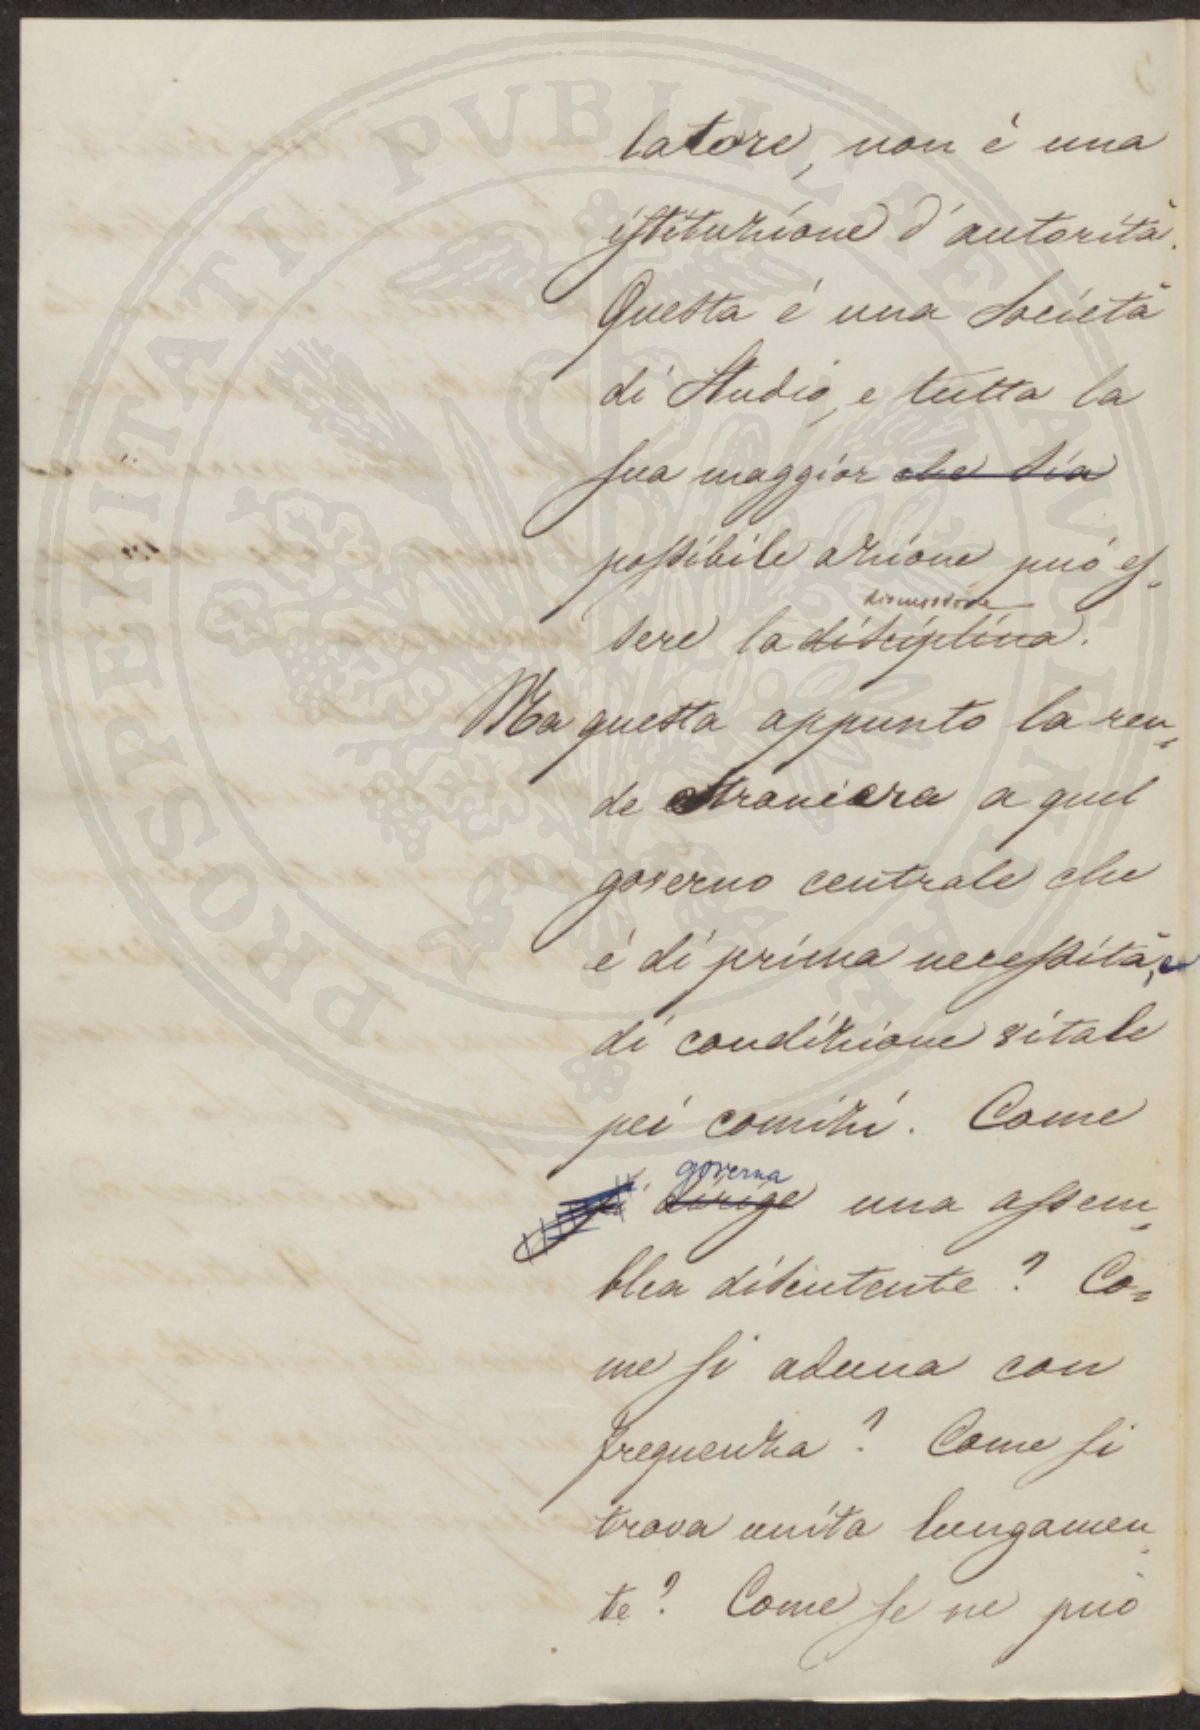 PROSPERITATI PUBLICAE AUGENDAE
latore, non è una
istituzione d'autorità.
Questa è una Società
di Studio, e tutta la
sua maggior che sia
possibile azione può es-
discussione
sere la disciplina.
Ma questa appunto la ren-
de straniera a quel
governo centrale che
è di prima necessità, e
di condizione vitale
pei comizi. Come
governa
si dirige una assem-
blea discutente? Co-
me si aduna con
frequenza? Come si
trova unita lungamen-
te? Come se ne può